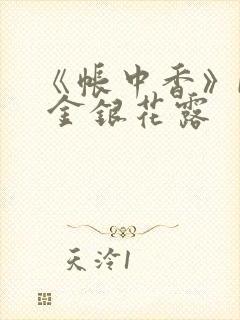 《帐中香》
金银花露
天泠1